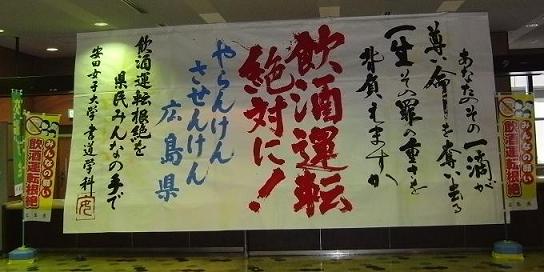 あなたのその一滴が
尊い命を奪い去る
一生その罪の重さを
背負えますか
飲酒運転
絶対に!
やらんけん
させんけん
広島県
飲酒運転根絶を
県民みんなの手で
安田女子大学書道学科
みんなの願い
飲酒運転根絶
みんなの願い
飲酒運転根絶
広島県